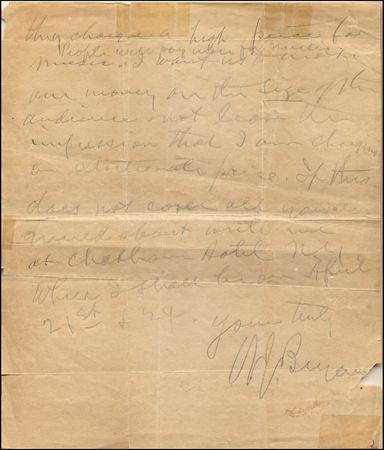 they charge a high price for
People will pay more for
music. I want to make
our money on the size of the
audience & not leave the
impression that I am charging
an price. If this
does not cover all you
about write me
at Chatham Hotel N.Y.
where I shall be on April
21st & 24. Yours truly
W.J. Bryan